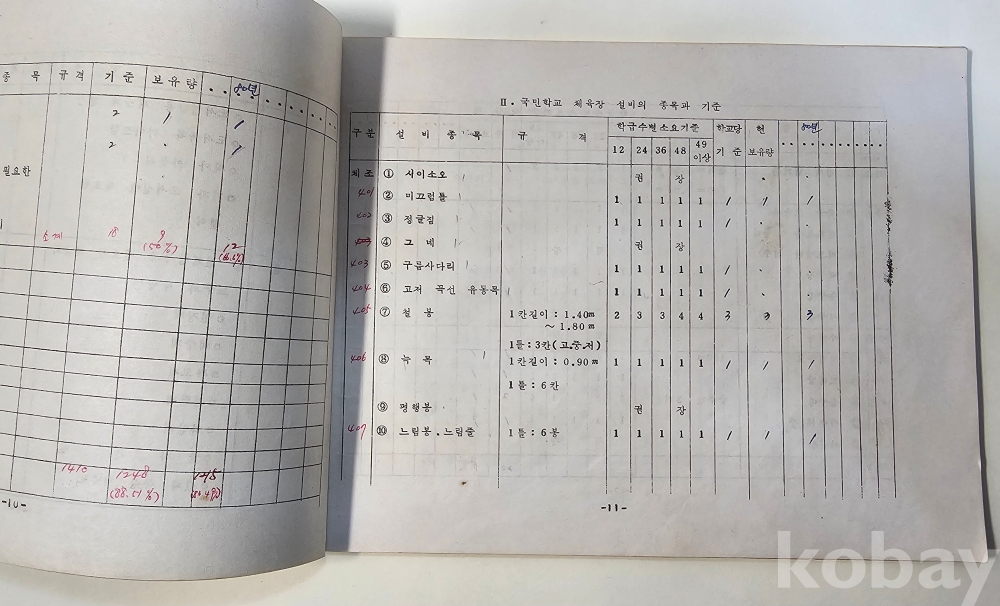 종 목 규 격 기 준 보 유 량 . . 80년 . . . . . .
2 1 1
2 . 1
필요한
소계 18 9 12
(50%) (66.6%)
1410 1248 1245
(88.51%)
-10-
Ⅱ. 국민학교 체육장 설비의 종목과 기준
구분 설 비 종 목 규 격 학급수별소요기준 학교당 현 80년
12 24 36 48 49이상 기 준 보유량
체조 ① 시이소오 권 장 . .
401 ② 미끄럼틀 1 1 1 1 1 1 1 1
402 ③ 정글짐 1 1 1 1 1 1 .
403 ④ 그 네 권 장
403 ⑤ 구름사다리 1 1 1 1 1 1 . .
404 ⑥ 고저 곡선 유동목 1 1 1 1 1 1 . .
405 ⑦ 철 봉 1칸길이 : 1.40m 2 3 3 4 4 3 3 3
~ 1.80m
1틀 : 3칸(고.중.저)
406 ⑧ 늑 목 1칸길이 : 0.90m 1 1 1 1 1 1 1 1
1틀 : 6칸
⑨ 평행봉 권 장
407 ⑩ 느림봉.느림줄 1틀 : 6봉 1 1 1 1 1 1 1 1
-11-
kobay